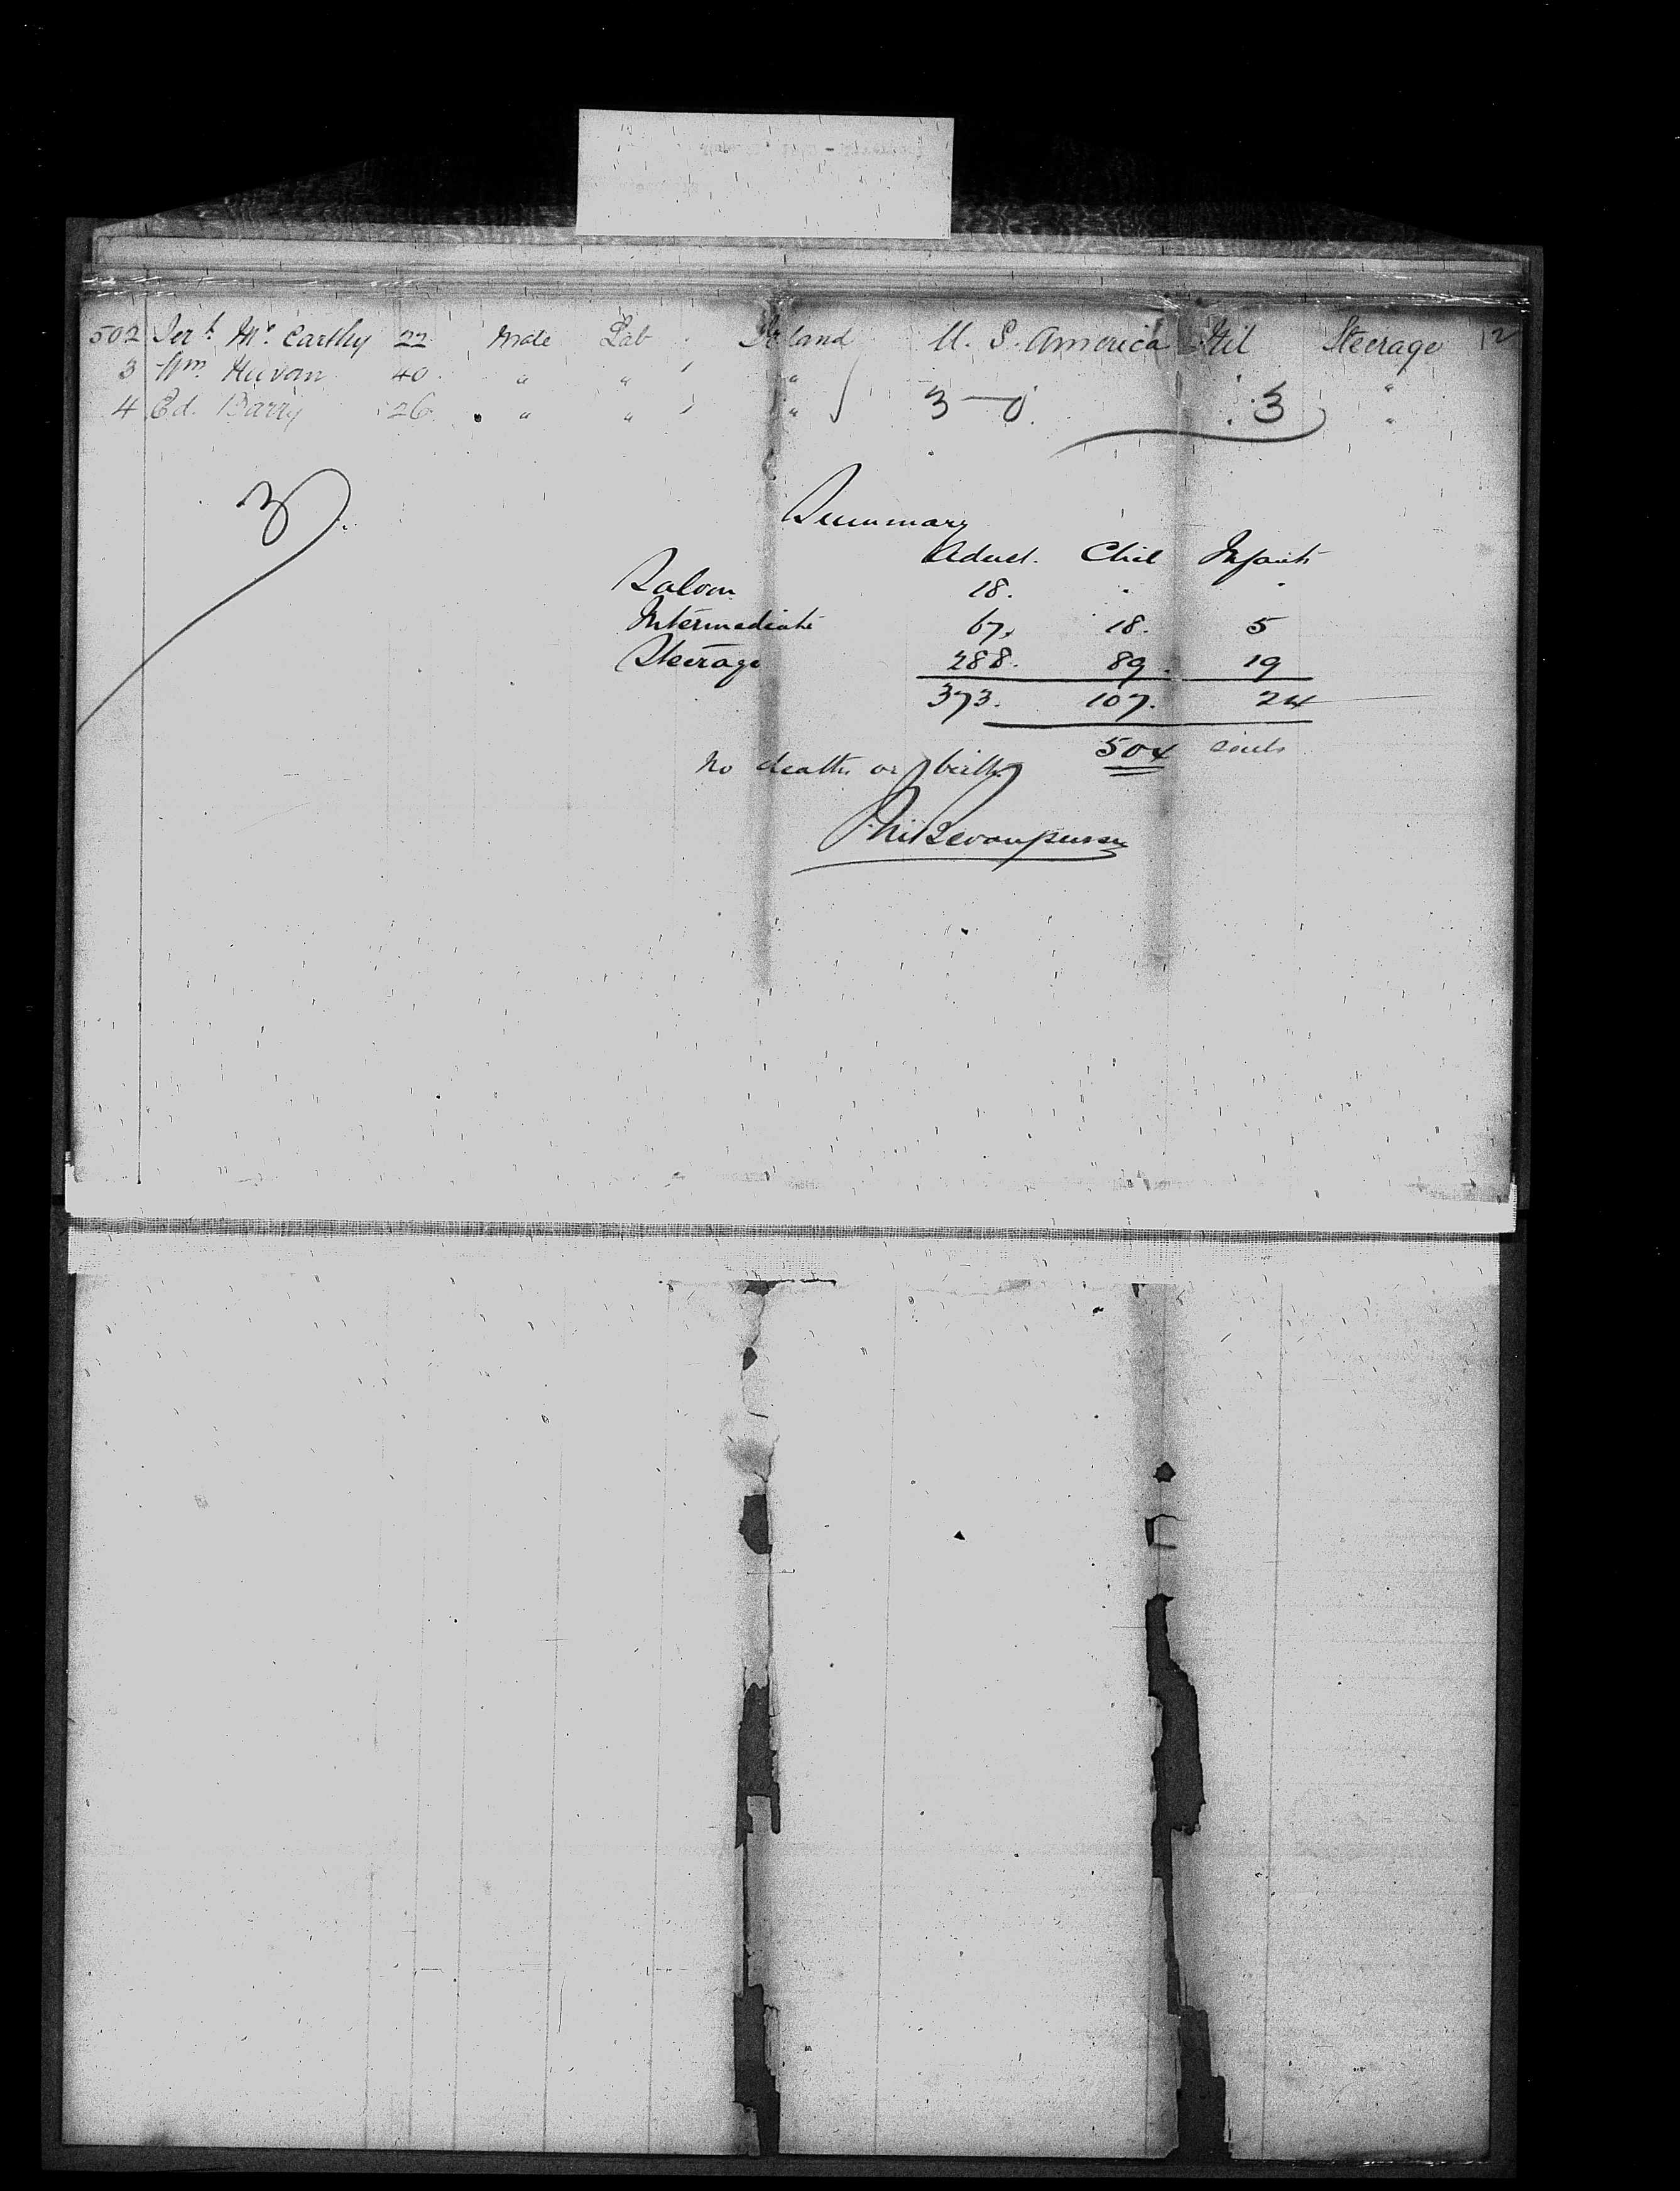 502 Jerh. Mc. Carthy 22 Male Lab Ireland U. S. America Nil Steerage 12
3 Wm. 40 " " " "
4 Ed. Barry 26 " " " 3 — 0 3 "
3
Summary
Adult. Chil Infants
Saloon 18. " "
Intermediate 67. 18. 5
Steerage 288. 89. 19
373. 107. 24
504 souls
No deaths or births